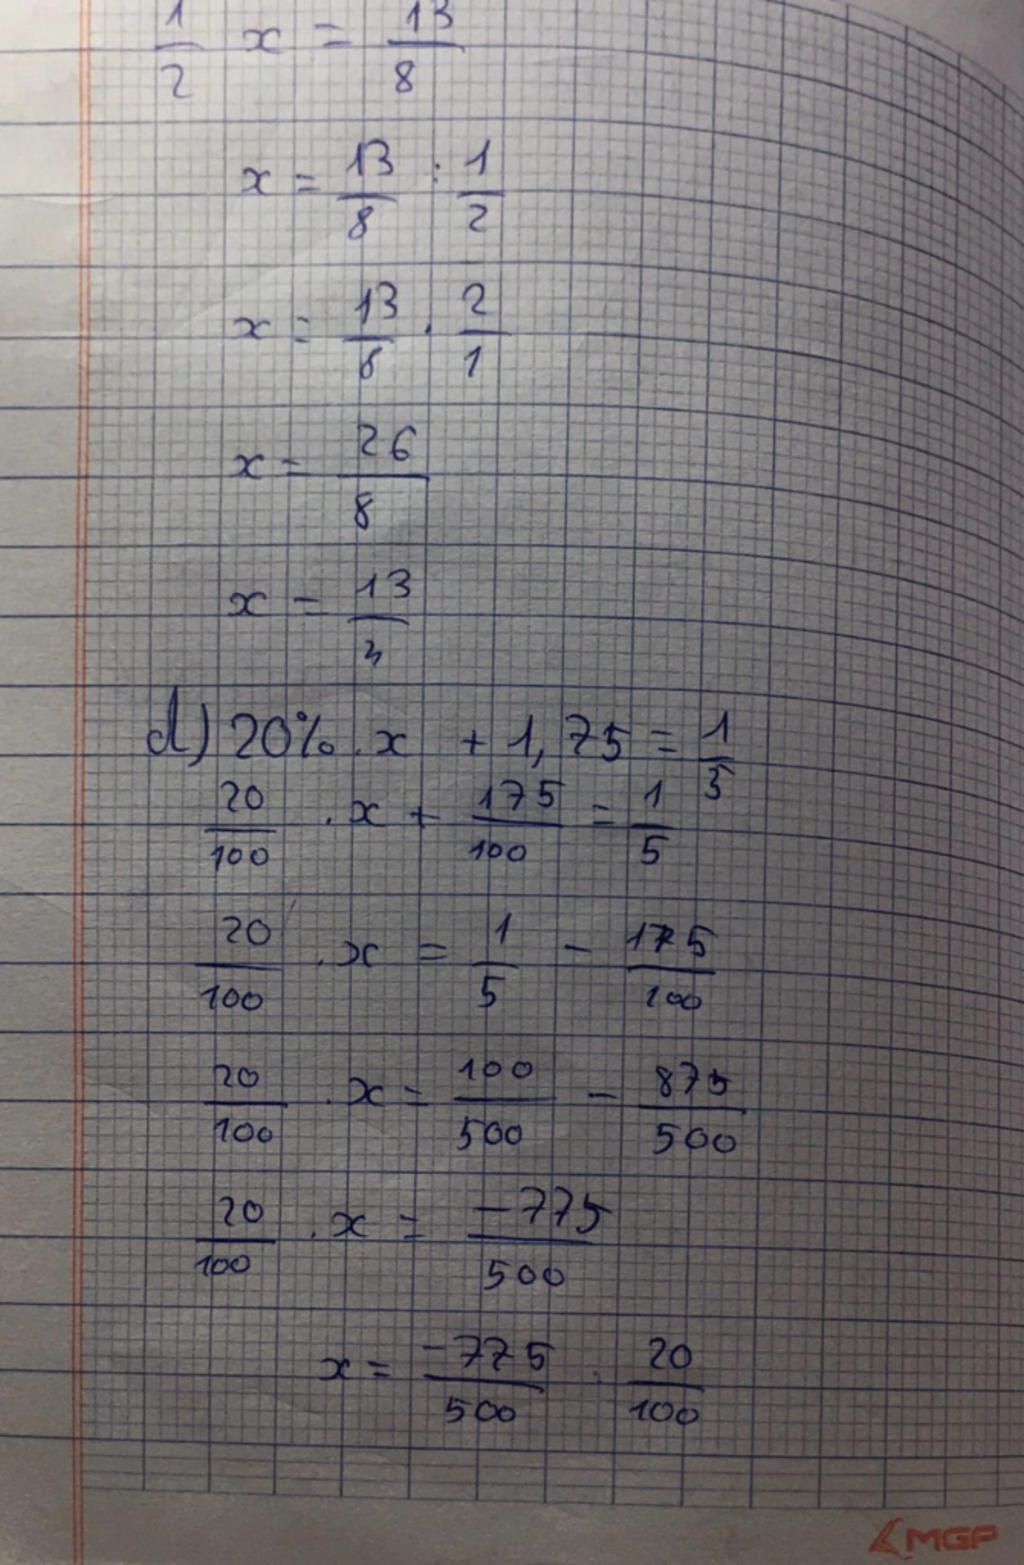 1/2 x = 13/8
x = 13/8 : 1/2
x = 13/8 . 2/1
x = 26/8
x = 13/4
d) 20% . x + 1,75 = 1/5
20/100 . x + 175/100 = 1/5
20/100 . x = 1/5 - 175/100
20/100 . x = 100/500 - 875/500
20/100 . x = -775/500
x = -775/500 . 20/100
MGP